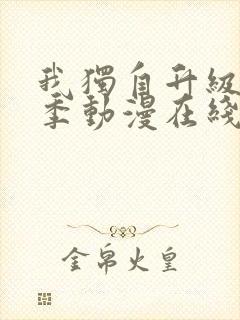 我獨自升級
季動漫在綫
金帛火皇